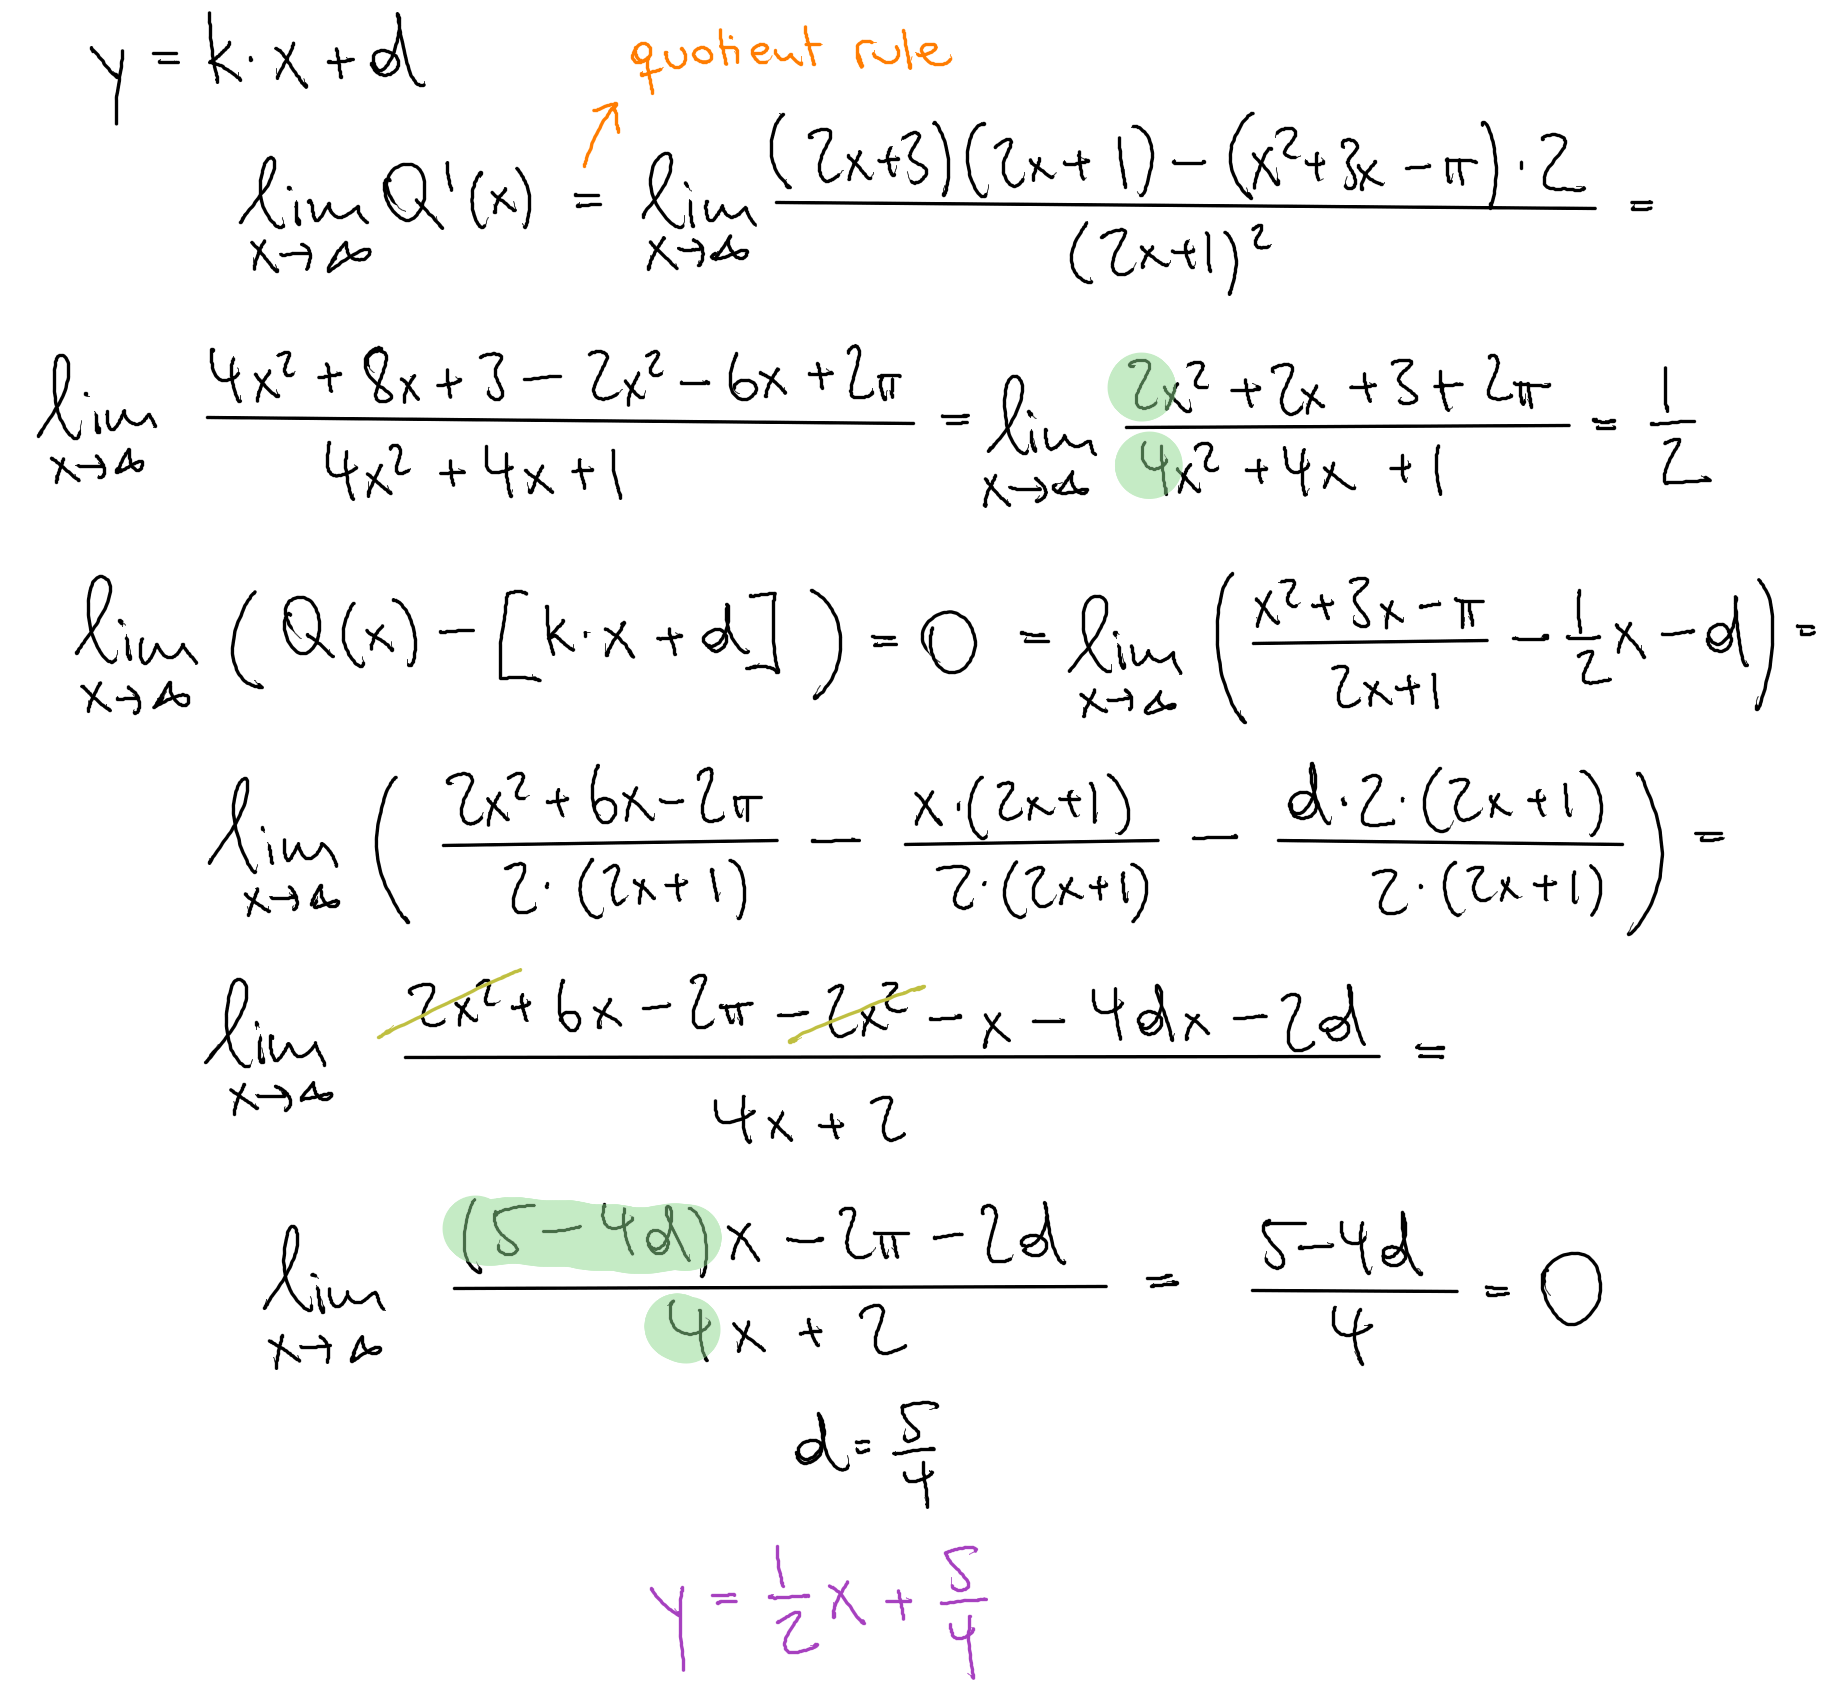 y = k·x + d
quotient rule
lim x→∞ Q'(x) = lim x→∞ ((2x+3)(2x+1) − (x²+3x−π)·2)/((2x+1)²) =
lim x→∞ (4x² + 8x + 3 − 2x² − 6x + 2π)/(4x² + 4x + 1) = lim x→∞ (2x² + 2x + 3 + 2π)/(4x² + 4x + 1) = 1/2
lim x→∞ (Q(x) − [k·x + d]) = 0 = lim x→∞ ((x²+3x−π)/(2x+1) − 1/2 x − d) =
lim x→∞ ((2x² + 6x − 2π)/(2·(2x+1)) − (x·(2x+1))/(2·(2x+1)) − (d·2·(2x+1))/(2·(2x+1))) =
lim x→∞ (2x² + 6x − 2π − 2x² − x − 4dx − 2d)/(4x + 2) =
lim x→∞ ((5−4d)x − 2π − 2d)/(4x + 2) = (5−4d)/4 = 0
d = 5/4
y = 1/2 x + 5/4